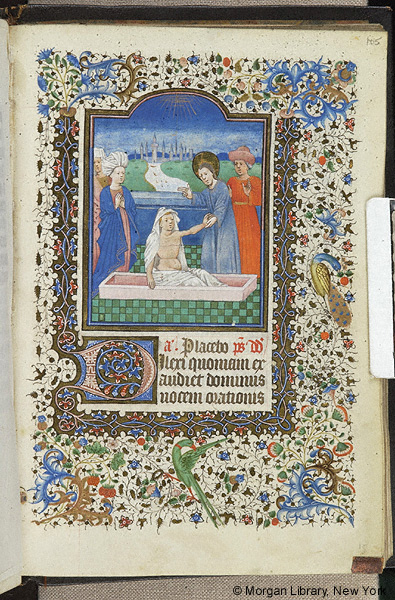 105
a'. Placebo ps dd
Ilexi quoniam ex
audiet dominus
vocem orationis
© Morgan Library, New York